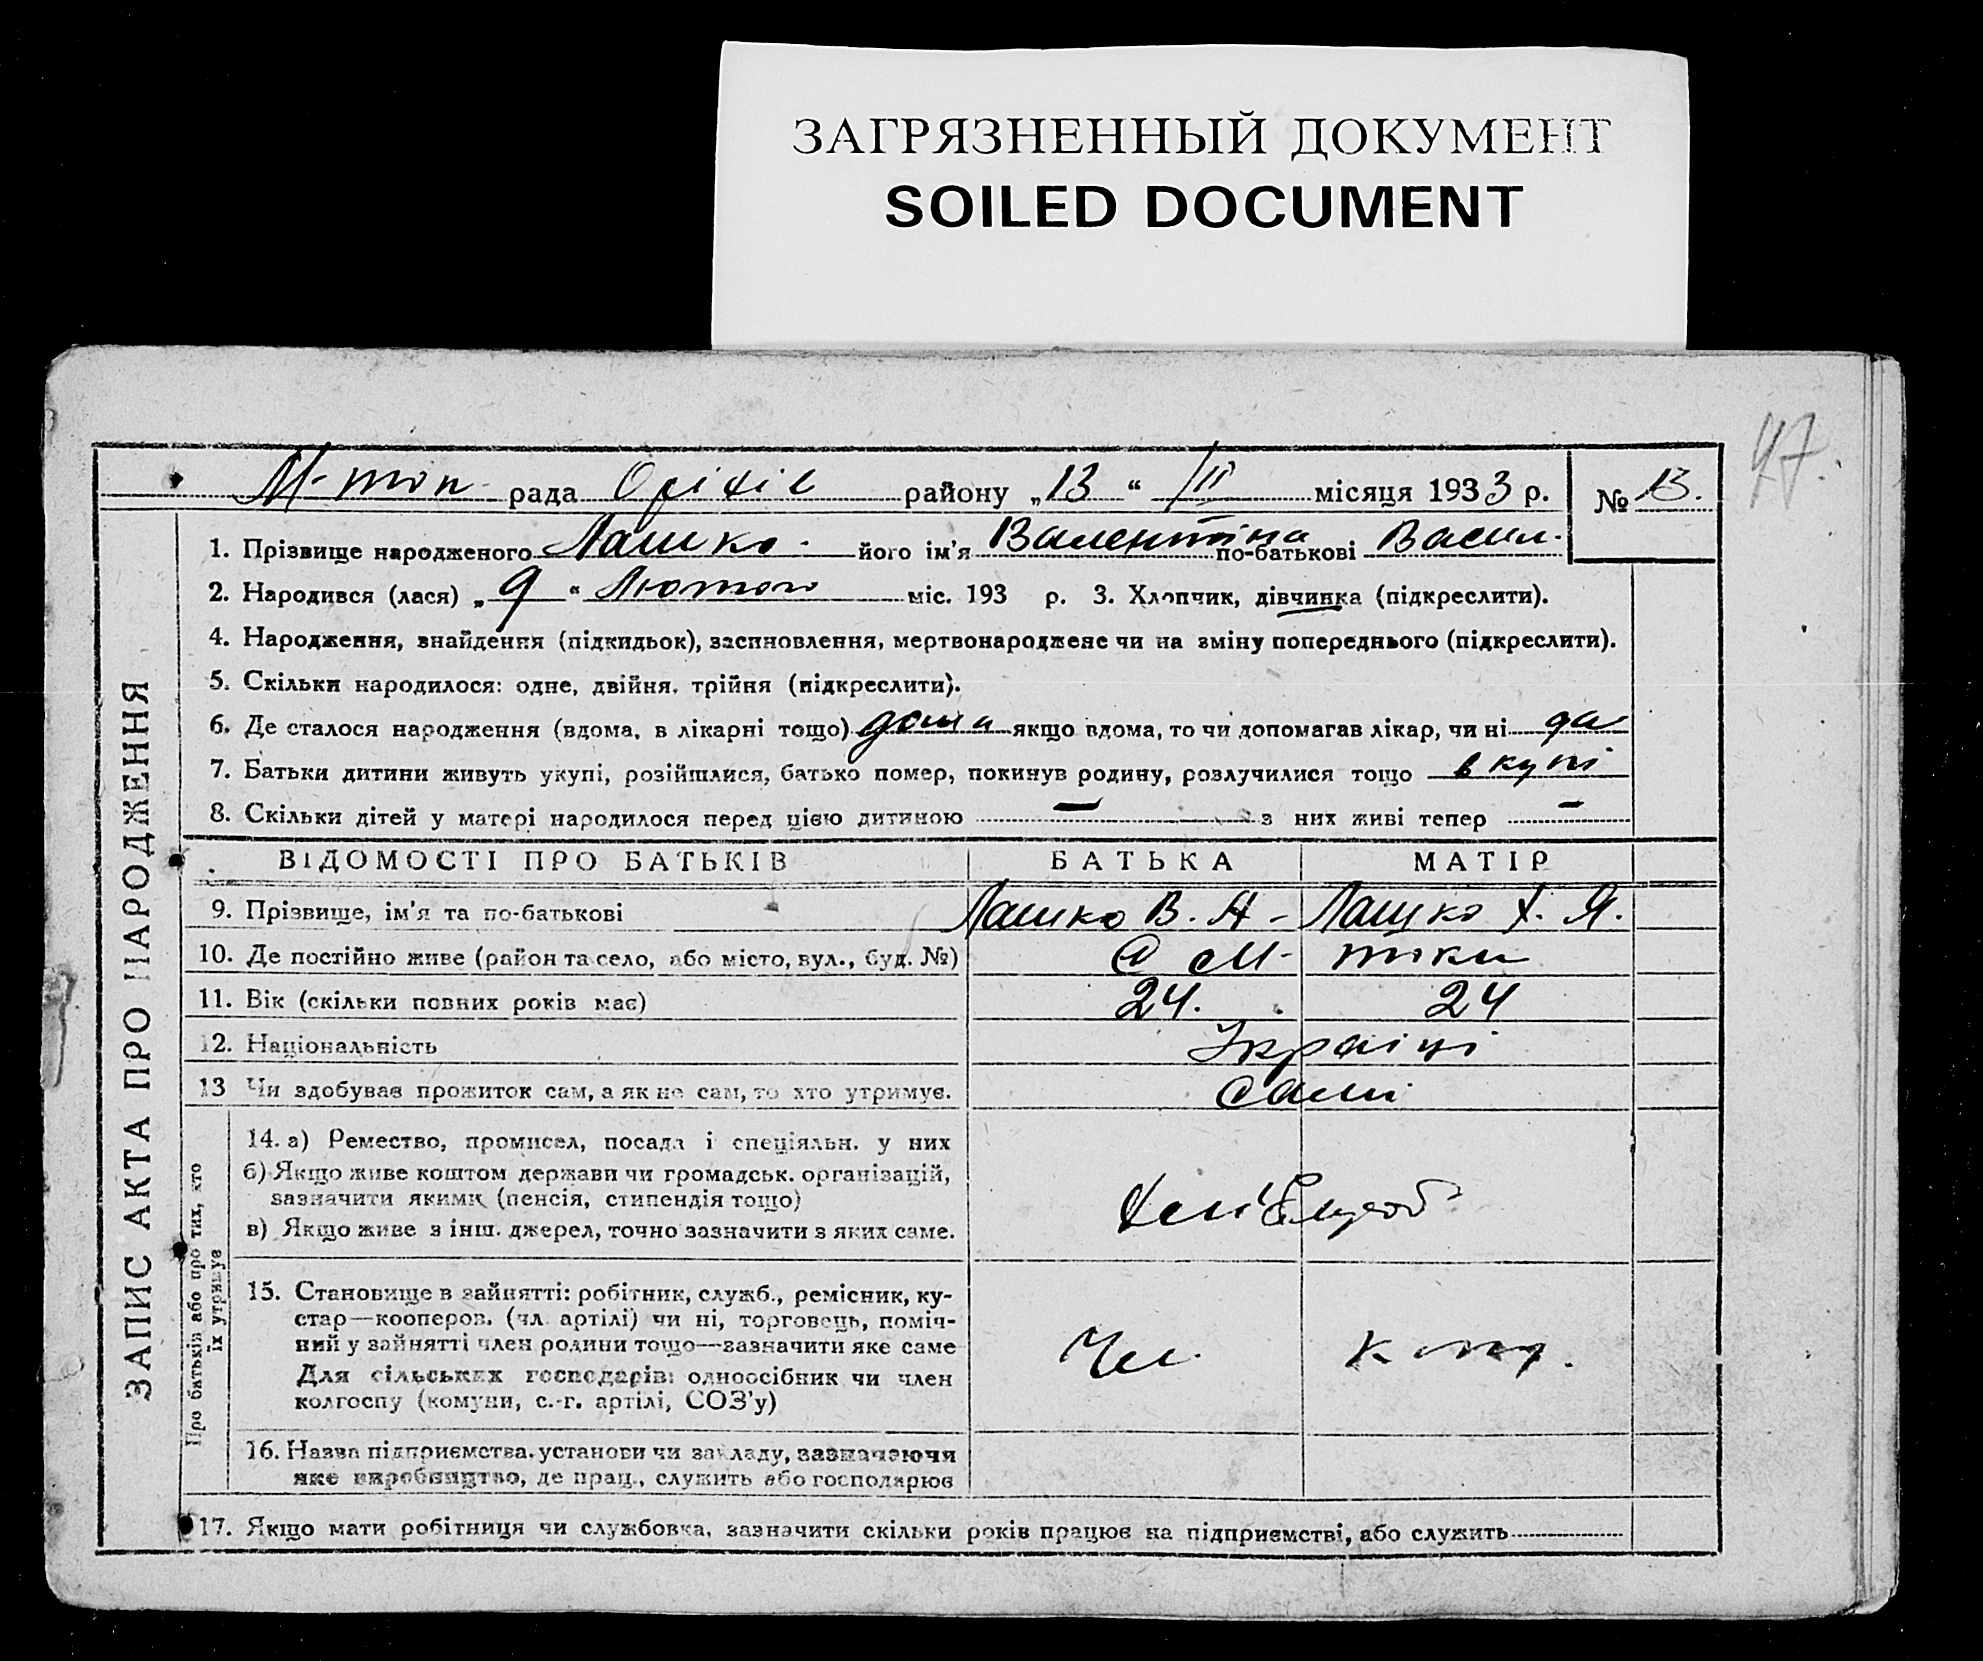 ЗАГРЯЗНЕННЫЙ ДОКУМЕНТ
SOILED DOCUMENT
47.
М-топ рада Оріхів району „13“ ІІІ місяця 1933 р. № 13.
1. Прізвище народженого Лашко. його ім’я Валентіна по-батькові Васил.
2. Народився (лася) „9“ Лютого міс. 193 р. 3. Хлопчик, дівчинка (підкреслити).
4. Народження, знайдення (підкидьок), заспновлення, мертвонароджене чи на зміну попереднього (підкреслити).
5. Скільки народилося: одне, двійня, трійня (підкреслити).
6. Де сталося народження (вдома, в лікарні тощо) дома якщо вдома, то чи допомагав лікар, чи ні да
7. Батьки дитини живуть укупі, розійшлися, батько помер, покинув родину, розлучилися тощо вкупі
8. Скільки дітей у матері народилося перед цією дитиною — з них живі тепер —
ВІДОМОСТІ ПРО БАТЬКІВ БАТЬКА МАТІР
9. Прізвище, ім’я та по-батькові Лашко В. А- Лашко Х. Я.
10. Де постійно живе (район та село, або місто, вул., буд. №) С М- токи
11. Вік (скільки повних років має) 24. 24
12. Національність Українці
13 Чи здобуває прожиток сам, а як не сам, то хто утримує. Самі
14. а) Ремество, промисел, посада і спеціяльн. у них
б) Якщо живе коштом держави чи громадськ. організацій,
зазначити якими (пенсія, стипендія тощо)
в) Якщо живе з інш. джерел, точно зазначити з яких саме.
15. Становище в зайнятті: робітник, служб., ремісник, ку-
стар—кооперов. (чл. артілі) чи ні, торговець, поміч-
ний у зайнятті член родини тощо—зазначити яке саме
Для сільських господарів: одноосібник чи член
колгоспу (комуни, с.-г. артілі, СОЗ’у)
Чл.
16. Назва підприємства, установи чи закладу, зазначаючи
яке виробництво, де прац., служить або господарює
17. Якщо мати робітниця чи службовка, зазначити скільки років працює на підприємстві, або служить
ЗАПИС АКТА ПРО НАРОДЖЕННЯ
Про батьків або про тих, хто
їх утримує